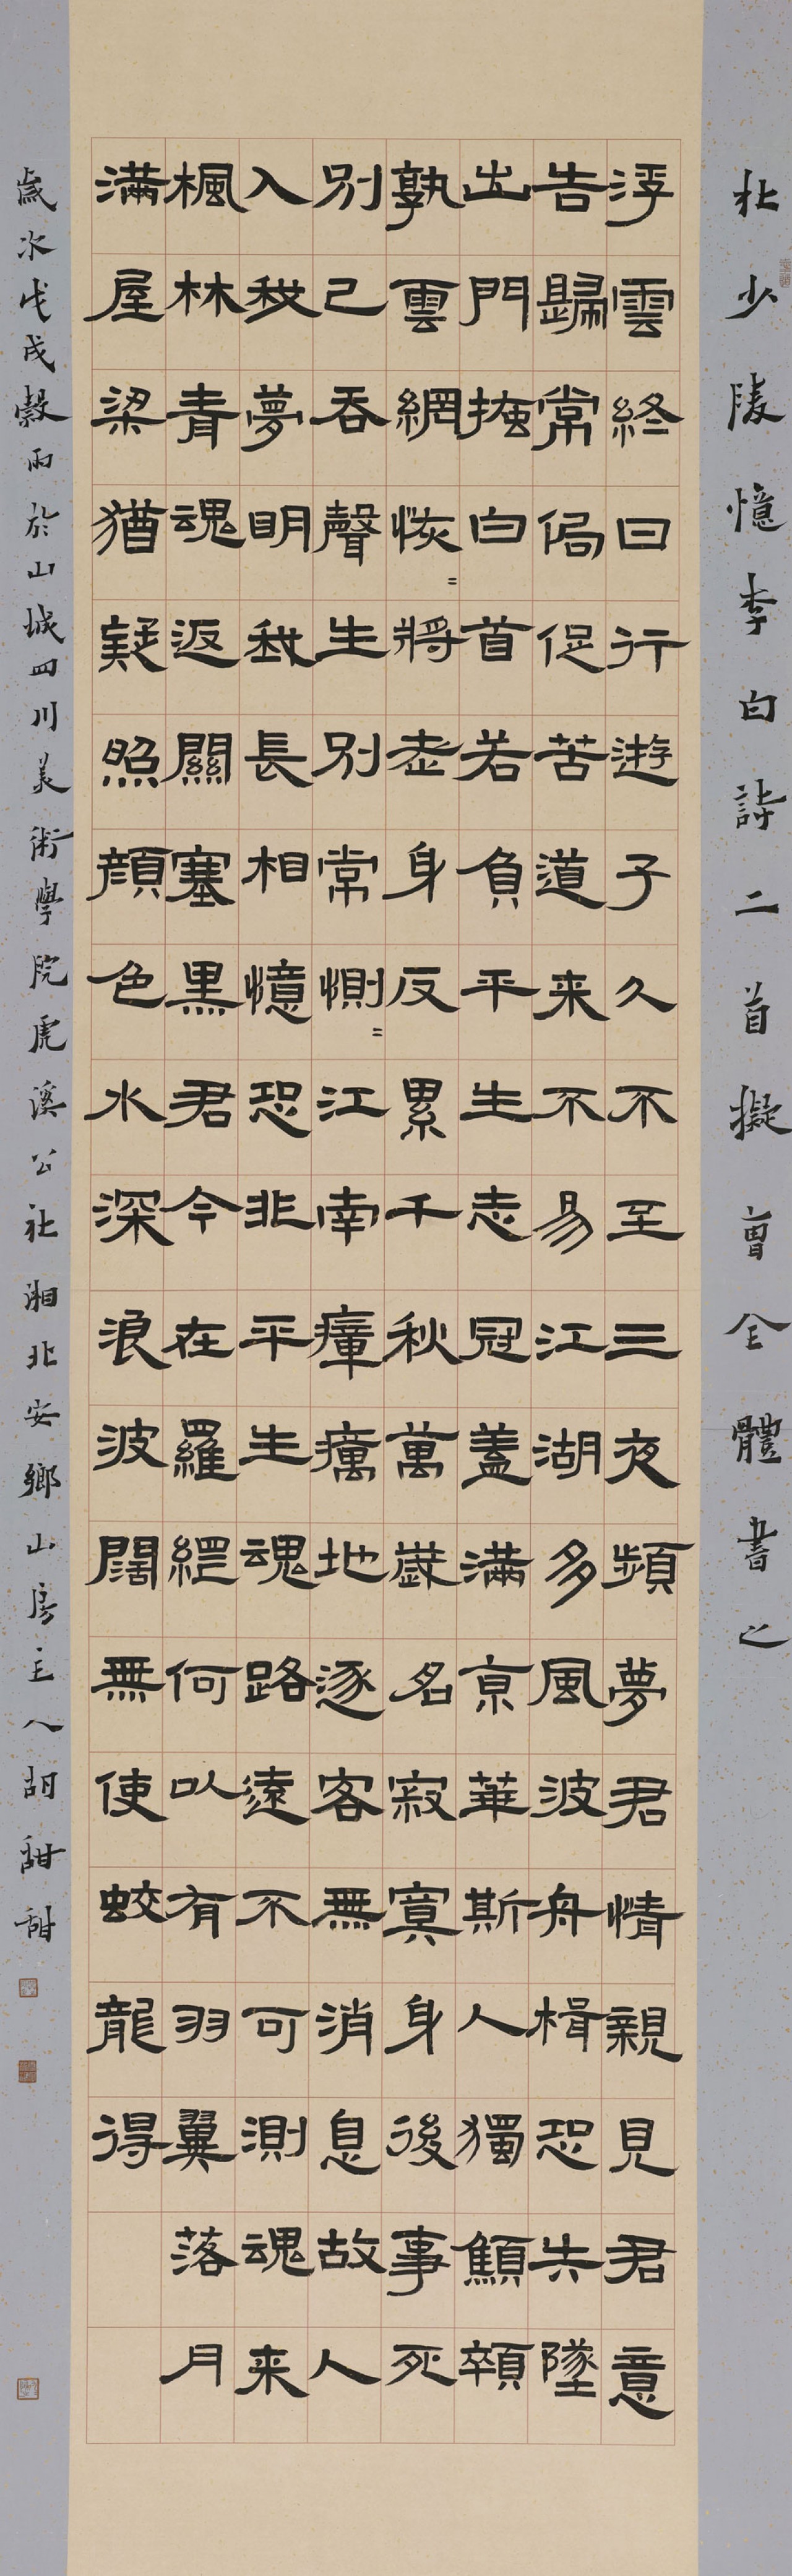 杜少陵憶李白詩二首擬曹全體書之
浮雲終日行遊子久不至三夜頻夢君情親見君意
告歸常侷促苦道来不易江湖多風波舟楫恐失墜
出門掩白首若負平生志冠蓋滿京華斯人獨顦顇
孰雲網恢=將老身反累千秋萬歲名寂寞身後事死
別已吞聲生別常惻=江南瘴癘地逐客無消息故人
入我夢明我長相憶恐非平生魂路遠不可測魂来
楓林青魂返關塞黑君今在羅網何以有羽翼落月
滿屋梁猶疑照顏色水深浪波闊無使蛟龍得
歲次戊戌穀雨於山城四川美術學院虎溪公社湘北安鄉山房主人胡甜甜